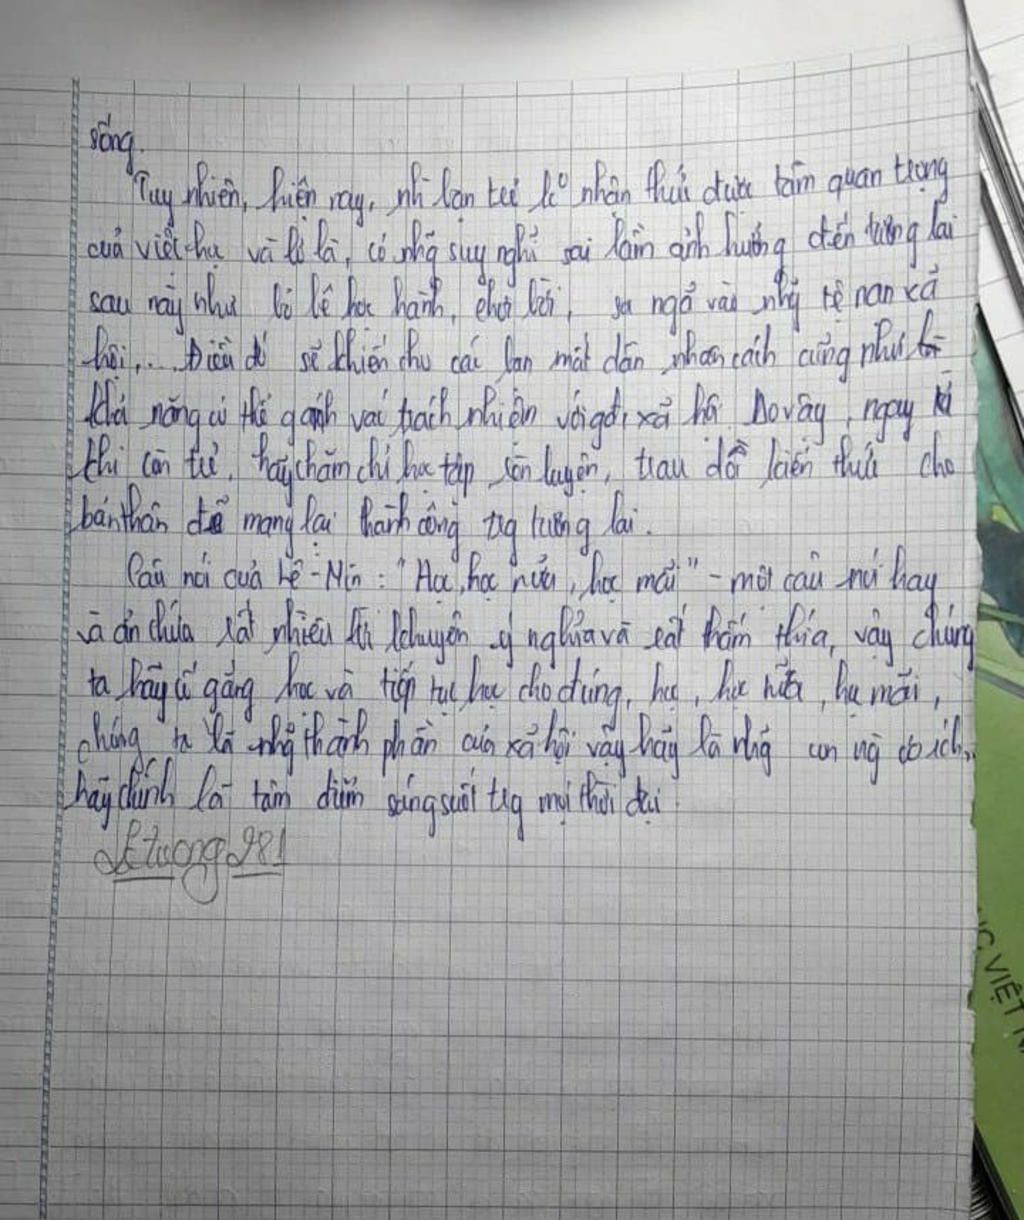 sống.
Tuy nhiên, hiện nay, nh` bạn trẻ ko nhận thức được tầm quan trọng
của việc học và lơ là, có nhg suy nghĩ sai lầm ảnh hưởng đến tương lai
sau này như bỏ bê học hành, chơi bời, sa ngã vào nhg tệ nạn xã
hội,... Điều đó sẽ khiến cho các bạn mất dần nhân cách cũng như
khả năng có thể gánh vai trách nhiệm với gđ, xã hội. Do vậy, ngay
khi còn trẻ, hãy chăm chỉ học tập rèn luyện, trau dồi kiến thức cho
bản thân để mang lại thành công trg tương lai.
Câu nói của Lê-Nin: "Học, học nữa, học mãi" - một câu nói hay
và ẩn chứa rất nhiều lời khuyên ý nghĩa và rất thấm thía, vậy chúng
ta hãy cố gắng học và tiếp tục học cho đúng, học, học nữa, học mãi,
chúng ta là nhg thành phần của xã hội vậy hãy là nhg con ng có ích,
hãy chính là tâm điểm sáng suốt trg mọi thời đại.
981
ỤC VIỆT NA